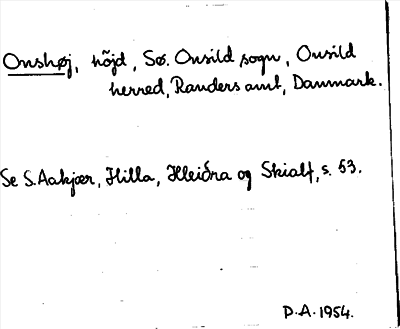 Onshøj, höjd, Sø. Onsild sogn, Onsild
herred, Randers amt, Danmark.
Se S. Aakjær, Hilla, Hleiðra og Skialf, s. 53.
P.A. 1954.